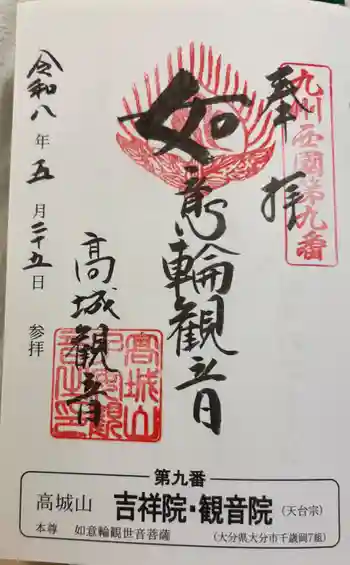 九州西國第九番
奉拝
如意輪観音
高城観音
令和八年五月二十五日 参拝
第九番
高城山 吉祥院・観音院 (天台宗)
本尊 如意輪観世音菩薩 (大分県大分市千歳岡7組)